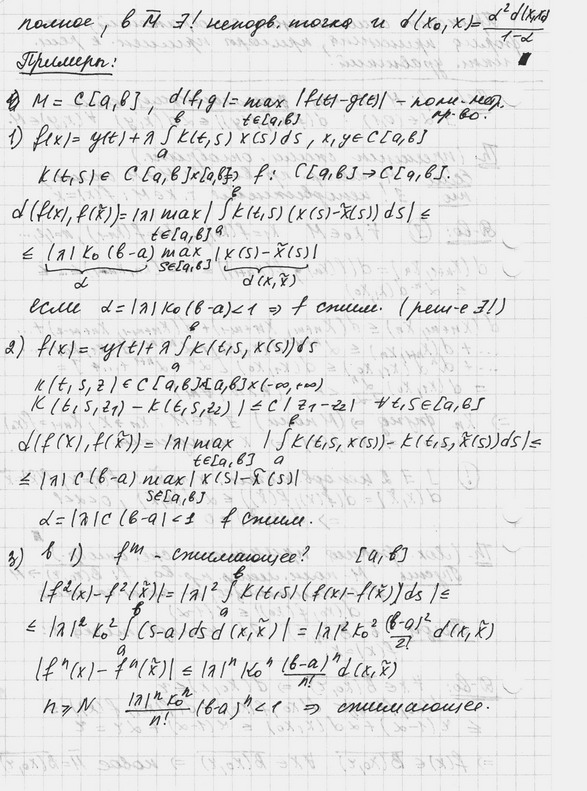 полное, в M̄ ∃! неподв. точка и d(x₀, x) = α²d(x₁,x₀)/(1-α)
Примеры:
M = C[a,b], d(f,g) = max_{t∈[a,b]} |f(t)-g(t)| - полн. метр. пр-во.
1) f(x) = y(t) + λ ∫_a^b K(t,s) x(s) ds, x,y ∈ C[a,b]
K(t,s) ∈ C[a,b]×[a,b] f: C[a,b] → C[a,b].
d(f(x), f(x̃)) = |λ| max_{t∈[a,b]} | ∫_a^b K(t,s) (x(s)-x̃(s)) ds | ≤
≤ |λ| K₀ (b-a) max_{s∈[a,b]} |x(s) - x̃(s)|
α d(x,x̃)
если α = |λ| K₀ (b-a) < 1 ⇒ f сжим. (реш-е ∃!)
2) f(x) = y(t) + λ ∫_a^b K(t,s,x(s)) ds
K(t,s,z) ∈ C[a,b]×[a,b]×(-∞,+∞)
K(t,s,z₁) - K(t,s,z₂) | ≤ C |z₁-z₂| ∀t,s ∈ [a,b]
d(f(x), f(x̃)) = |λ| max_{t∈[a,b]} | ∫_a^b K(t,s,x(s)) - K(t,s,x̃(s)) ds | ≤
≤ |λ| C(b-a) max_{s∈[a,b]} |x(s) - x̃(s)|
α = |λ| C (b-a) < 1 f сжим.
3) в 1) fᵐ - сжимающее? [a,b]
|f²(x) - f²(x̃)| = |λ|² ∫_a^b K(t,s) (f(x) - f(x̃)) ds | ≤
≤ |λ|² K₀² ∫_a^b (s-a) ds d(x,x̃) | = |λ|² K₀² (b-a)²/2! d(x,x̃)
|fⁿ(x) - fⁿ(x̃)| ≤ |λ|ⁿ K₀ⁿ (b-a)ⁿ/n! d(x,x̃)
n ≥ N |λ|ⁿ K₀ⁿ/n! (b-a)ⁿ < 1 ⇒ сжимающее.